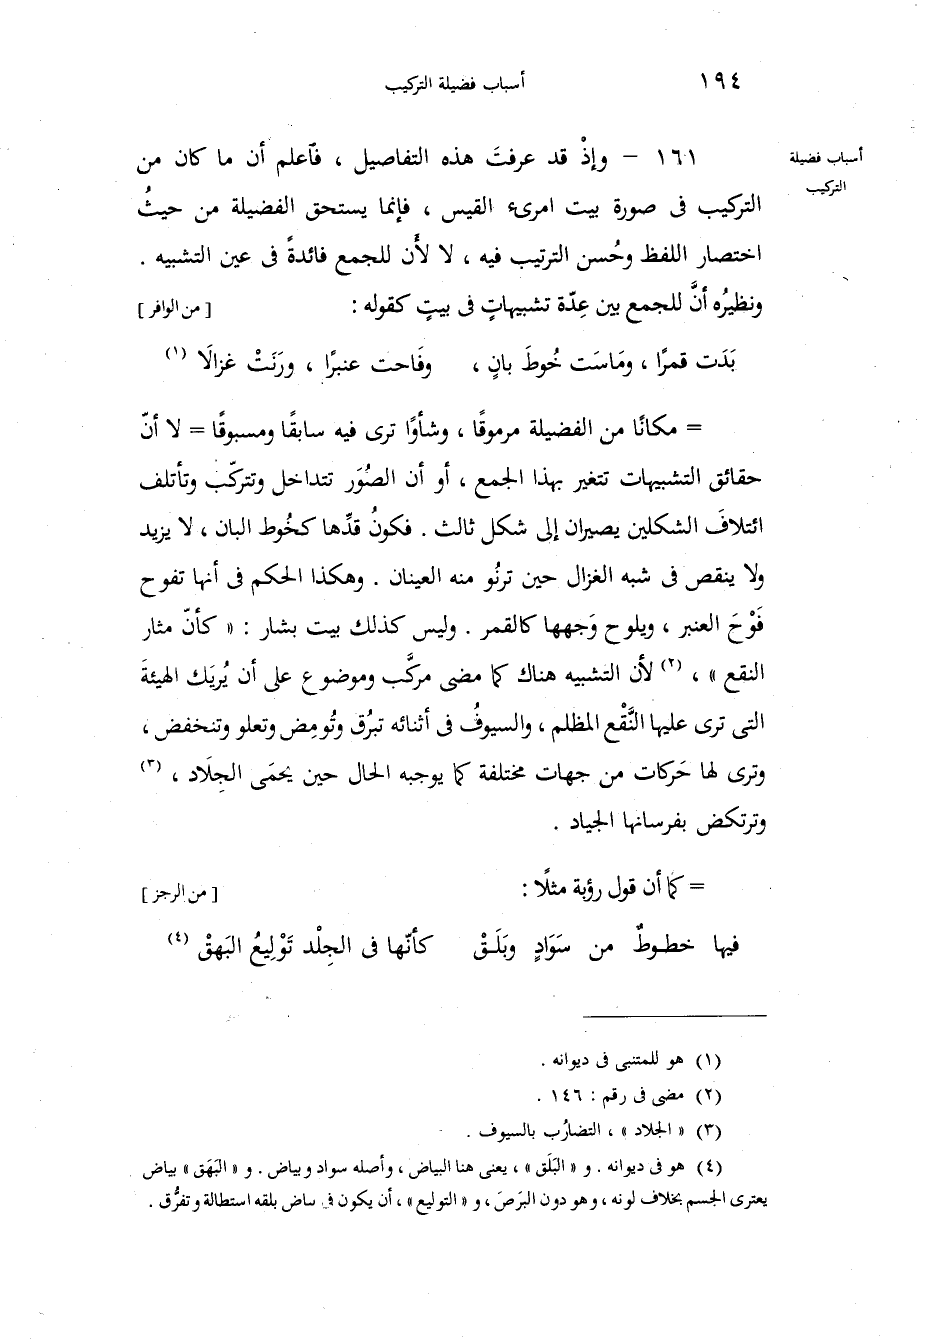 ١٩٤
أسباب فضيلة التركيب
أسباب فضيلة
التركيب
١٦١ – وإذْ قد عرفتَ هذه التفاصيل ، فآعلم أن ما كان من
التركيب فى صورة بيت امرىء القيس ، فإنما يستحق الفضيلة من حيثُ
اختصار اللفظ وحُسن الترتيب فيه ، لا لأَن للجمع فائدةً فى عين التشبيه .
ونظيرُه أنَّ للجمع بين عِدّة تشبيهاتٍ فى بيتٍ كقوله : [ من الوافر ]
بَدَت قمرًا ، ومَاسَت خُوطَ بانٍ ، وفَاحت عنبرًا ، ورَنَتْ غزالَا (١)
= مكانًا من الفضيلة مرموقًا ، وشأوًا ترى فيه سابقًا ومسبوقًا = لا أنّ
حقائق التشبيهات تتغير بهذا الجمع ، أو أن الصُوَر تتداخل وتتركّب وتأتلف
ائتلافَ الشكلين يصيران إلى شكل ثالث . فكونُ قدِّها كخُوط البان ، لا يزيد
ولا ينقص فى شبه الغزال حين ترنُو منه العينان . وهكذا الحكم فى أنها تفوح
فَوْحَ العنبر ، ويلوح وَجهها كالقمر . وليس كذلك بيت بشار : « كأنّ مثار
النقع » ، (٢) لأن التشبيه هناك كما مضى مركَّب وموضوع على أن يُريَك الهيئةَ
التى ترى عليها النَّقْع المظلم ، والسيوفُ فى أثنائه تبرُق وتُومِض وتعلو وتنخفض ،
وترى لها حَركات من جهات مختلفة كما يوجبه الحال حين يحمَى الجِلَاد ، (٣)
وترتكض بفرسانها الجياد .
= كما أن قول رؤبة مثلًا : [ من الرجز ]
فيها خطوطٌ من سَوَادٍ وبَلَقْ كأنّها فى الجِلْد تَوْلِيعُ البَهقْ (٤)
(١) هو للمتنبى فى ديوانه .
(٢) مضى فى رقم : ١٤٦ .
(٣) « الجلاد » ، التضارُب بالسيوف .
(٤) هو فى ديوانه . و « البَلَق » ، يعنى هنا البياض ، وأصله سواد وبياض . و « البَهَق » بياض
يعترى الجسم بخلاف لونه ، وهو دون البَرَصَ ، و « التوليع » ، أن يكون فى بياض بلقه استطالة وتفرُّق .